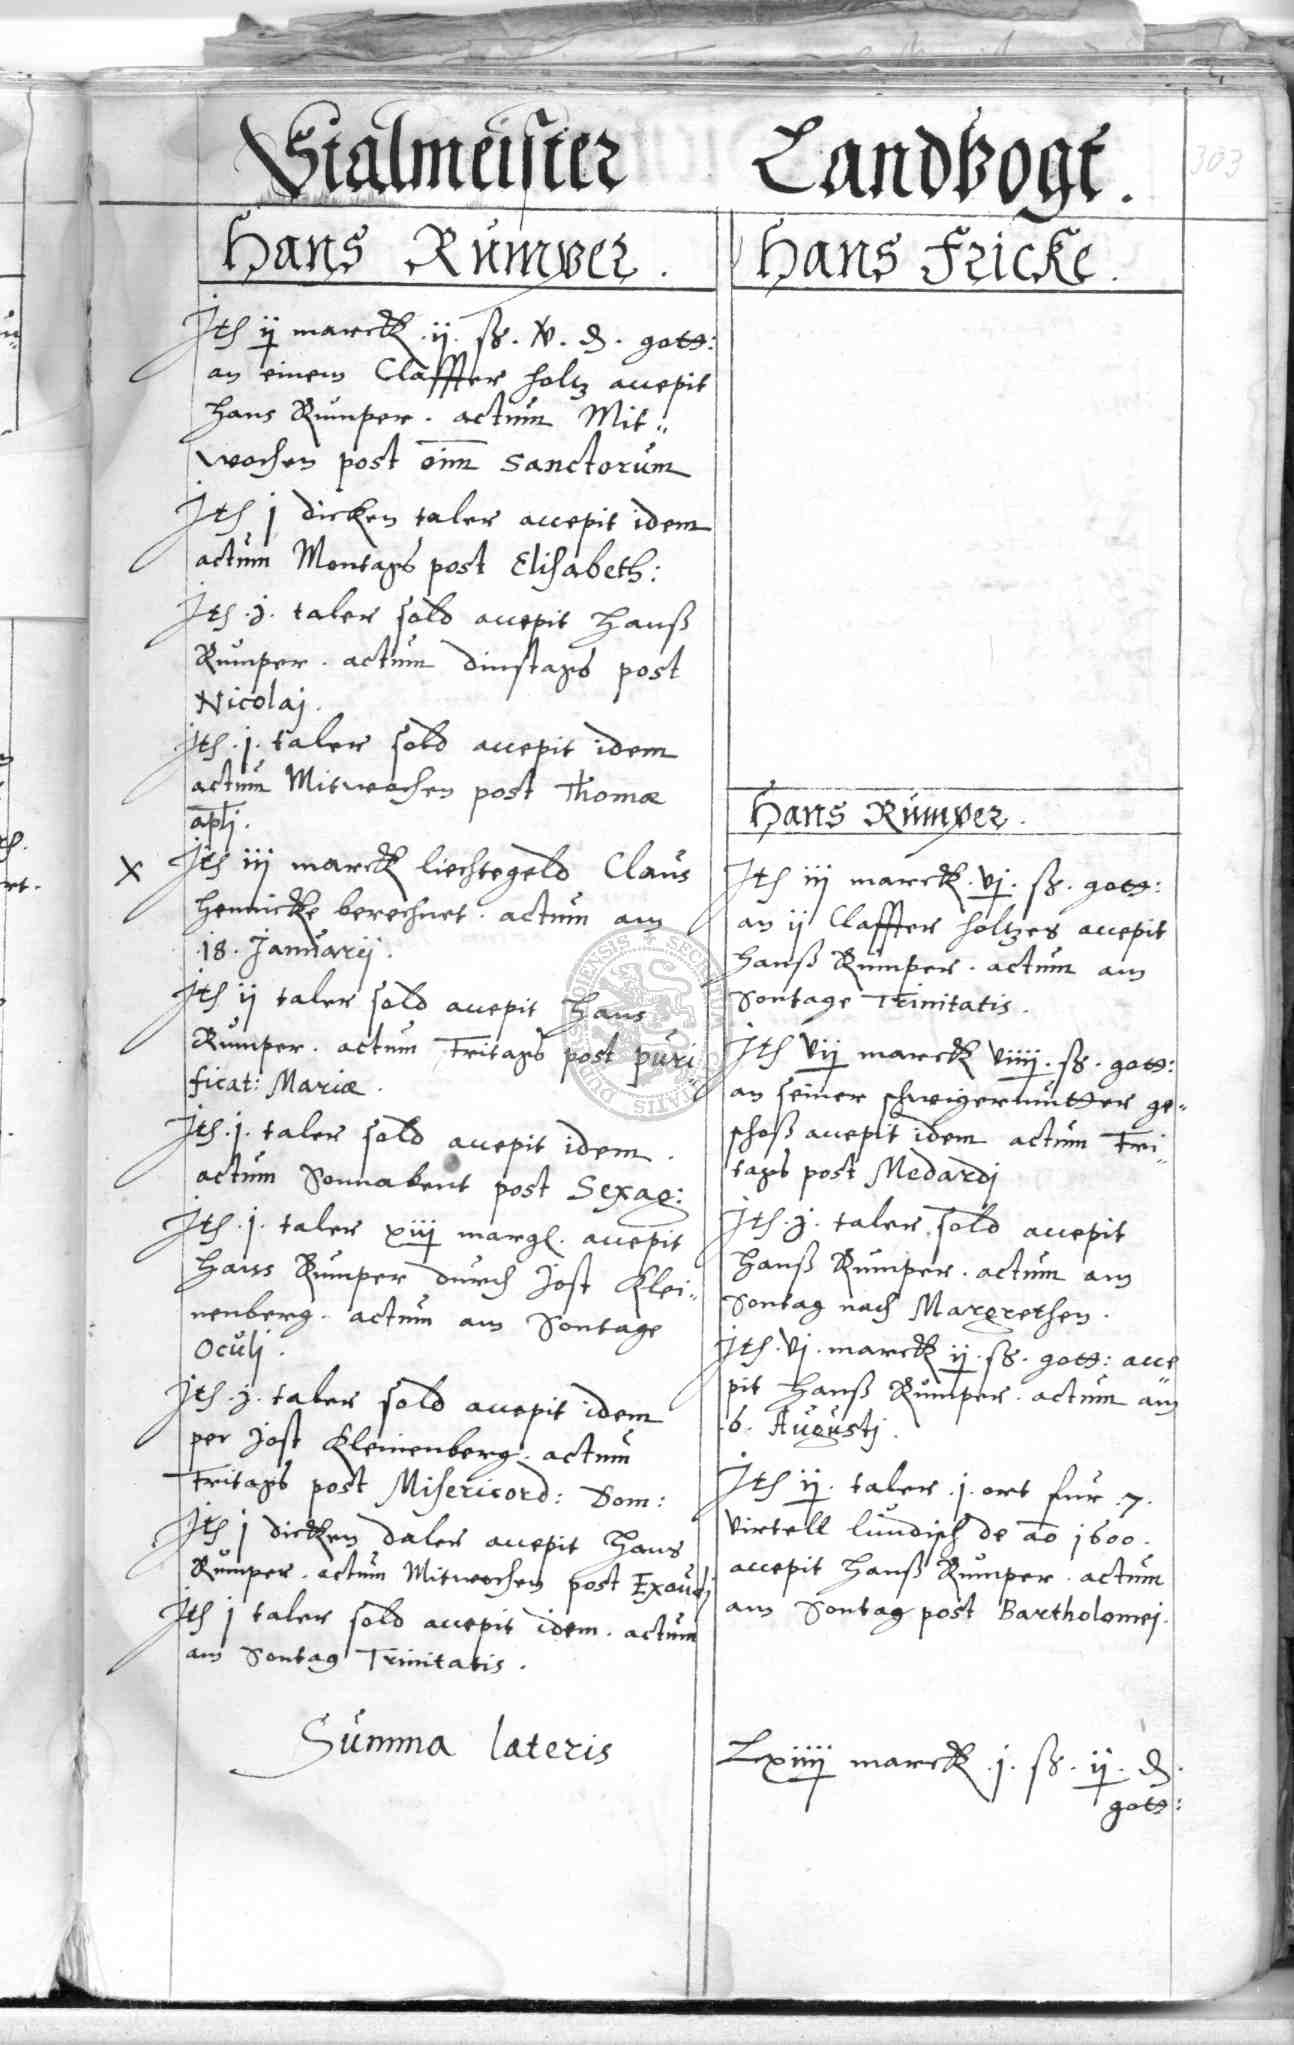 Stalmeister
Hans Rumper.
Jtem ij marck .ij. ß. v. ₰. gott:
an einem Claffter holtz accepit
Hans Rumper. actum Mit„
wochen post om̄ Sanctorum
Jtem j dicken taler accepit idem
actum Montags post Elisabeth:
Jtem .j. taler sold accepit Hanß
Rumper. actum dinstags post
Nicolaj.
Jtem .j. taler sold accepit idem
actum Mitwochen post Thomæ
apl̄j.
x Jtem iij marck liechtegeld Claus
Hennicke berechnet. actum am
.18. Januarij.
Jtem ij taler sold accepit Hans
Rumper. actum Fritags post puri„
ficat: Mariæ.
Jtem .j. taler sold accepit idem.
actum Sonnabent post Sexag:
Jtem .j. taler xiij margl. accepit
Hans Rumper durch Jost Klei„
nenberg. actum am Sontage
Oculj.
Jtem .j. taler sold accepit idem
per Jost Kleinenberg. actum
Fritags post Misericord: Dom:
Jtem j dicken daler accepit Hans
Rumper. actum Mitwochen post Exaudj
Jtem j taler sold accepit idem. actum
am Sontag Trinitatis.
Summa lateris
LandVogt.
303
Hans Fricke.
Hans Rumper.
Jtem iij marck .vj. ß. gott:
an ij Claffter holtzes accepit
Hanß Rumper. actum am
Sontage Trinitatis.
Jtem vij marck viiij. ß. gott:
an seiner schwigermutter ge„
schoß accepit idem actum Fri„
tags post Medardj
Jtem .j. taler sold accepit
Hanß Rumper. actum am
Sontag nach Margrethen.
Jtem .vj. marck ij. ß. gott: acce
pit Hanß Rumper. actum am
.6. Augustj.
Jtem ij. taler .j. ort fur .7.
virtell lundisch de ao 1600.
accepit Hanß Rumper. actum
am Sontag post Bartholomej.
Lxiiij marck .j. ß. ij. ₰.
gott: